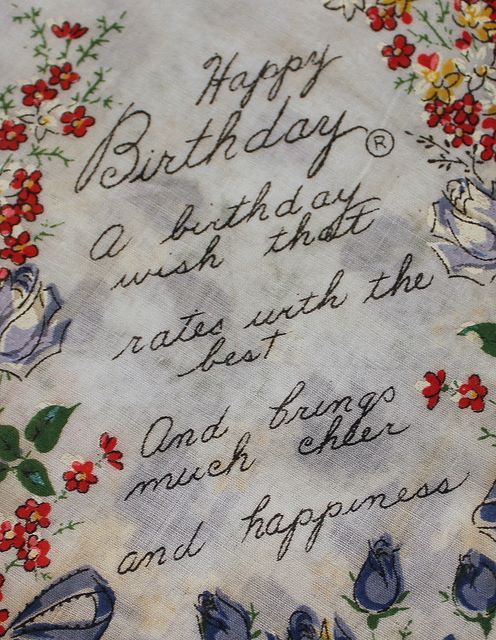 Happy
Birthday ®
A birthday
wish that
rates with the
best
And brings
much cheer
and happiness